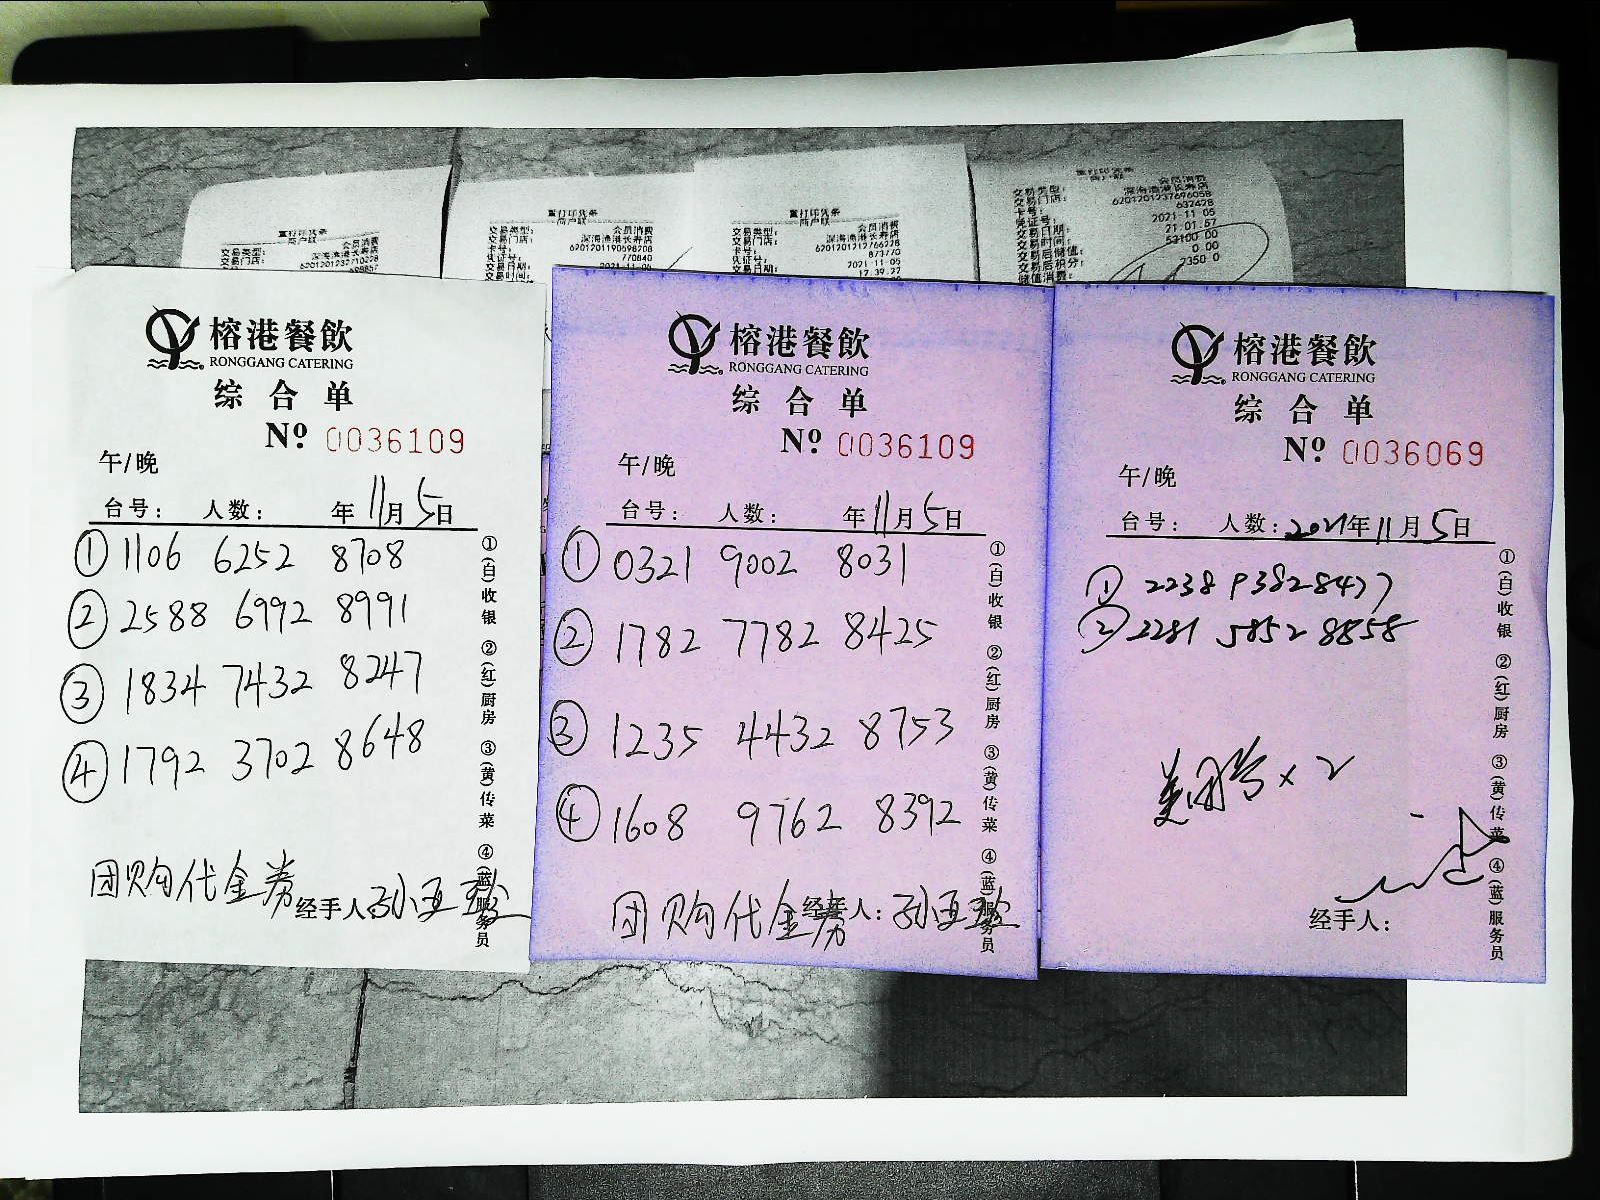 重打印凭条
商户联
交易类型: 会员消费
交易门店: 深海渔港长寿店
6201201237210228
重打印凭条
商户联
交易类型: 会员消费
交易门店: 深海渔港长寿店
卡号: 6201201190598208
凭证号: 770840
交易日期: 2021-11-05
交易时间:
重打印凭条
商户联
交易类型: 会员消费
交易门店: 深海渔港长寿店
卡号: 6201201212766228
凭证号: 873770
交易日期: 2021-11-05
交易时间: 17.39.22
重打印凭条
商户联
交易类型: 会员消费
交易门店: 深海渔港长寿店
卡号: 6201201237696058
凭证号: 632428
交易日期: 2021-11-05
交易时间: 21.01.57
交易后储值: 53100.00
交易后积分: 0.00
储值消费: 2350.0
榕港餐飲
RONGGANG CATERING
综合单
Nº 0036109
午/晚
台号: 人数: 年11月5日
① 1106 6252 8708
② 2588 6992 8991
③ 1834 7432 8247
④ 1792 3702 8648
团购代金券
经手人:
①(白)收银 ②(红)厨房 ③(黄)传菜 ④(蓝)服务员
榕港餐飲
RONGGANG CATERING
综合单
Nº 0036109
午/晚
台号: 人数: 年11月5日
① 0321 9002 8031
② 1782 7782 8425
③ 1235 4432 8753
④ 1608 9762 8392
团购代金券
经手人:
①(白)收银 ②(红)厨房 ③(黄)传菜 ④(蓝)服务员
榕港餐飲
RONGGANG CATERING
综合单
Nº 0036069
午/晚
台号: 人数: 2021年11月5日
① 2238 93828477
② 2281 5852 8858
美团券×2
经手人:
①(白)收银 ②(红)厨房 ③(黄)传菜 ④(蓝)服务员